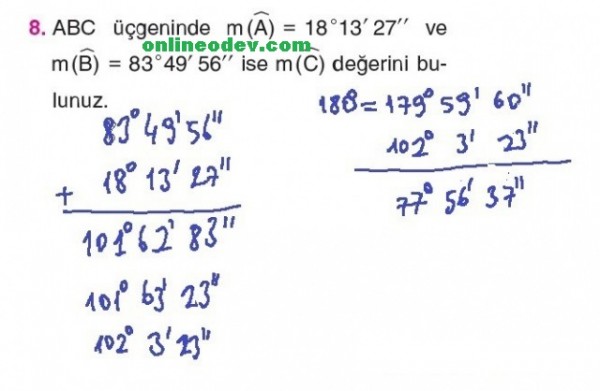 8. ABC üçgeninde m(Â) = 18°13′ 27′′ ve
onlineodev.com
m(B̂) = 83°49′ 56′′ ise m(Ĉ) değerini bu-
lunuz.
83° 49' 56"
+ 18° 13' 27"
101° 62' 83"
101° 63' 23"
102° 3' 23"
180 = 179° 59' 60"
102° 3' 23"
77° 56' 37"